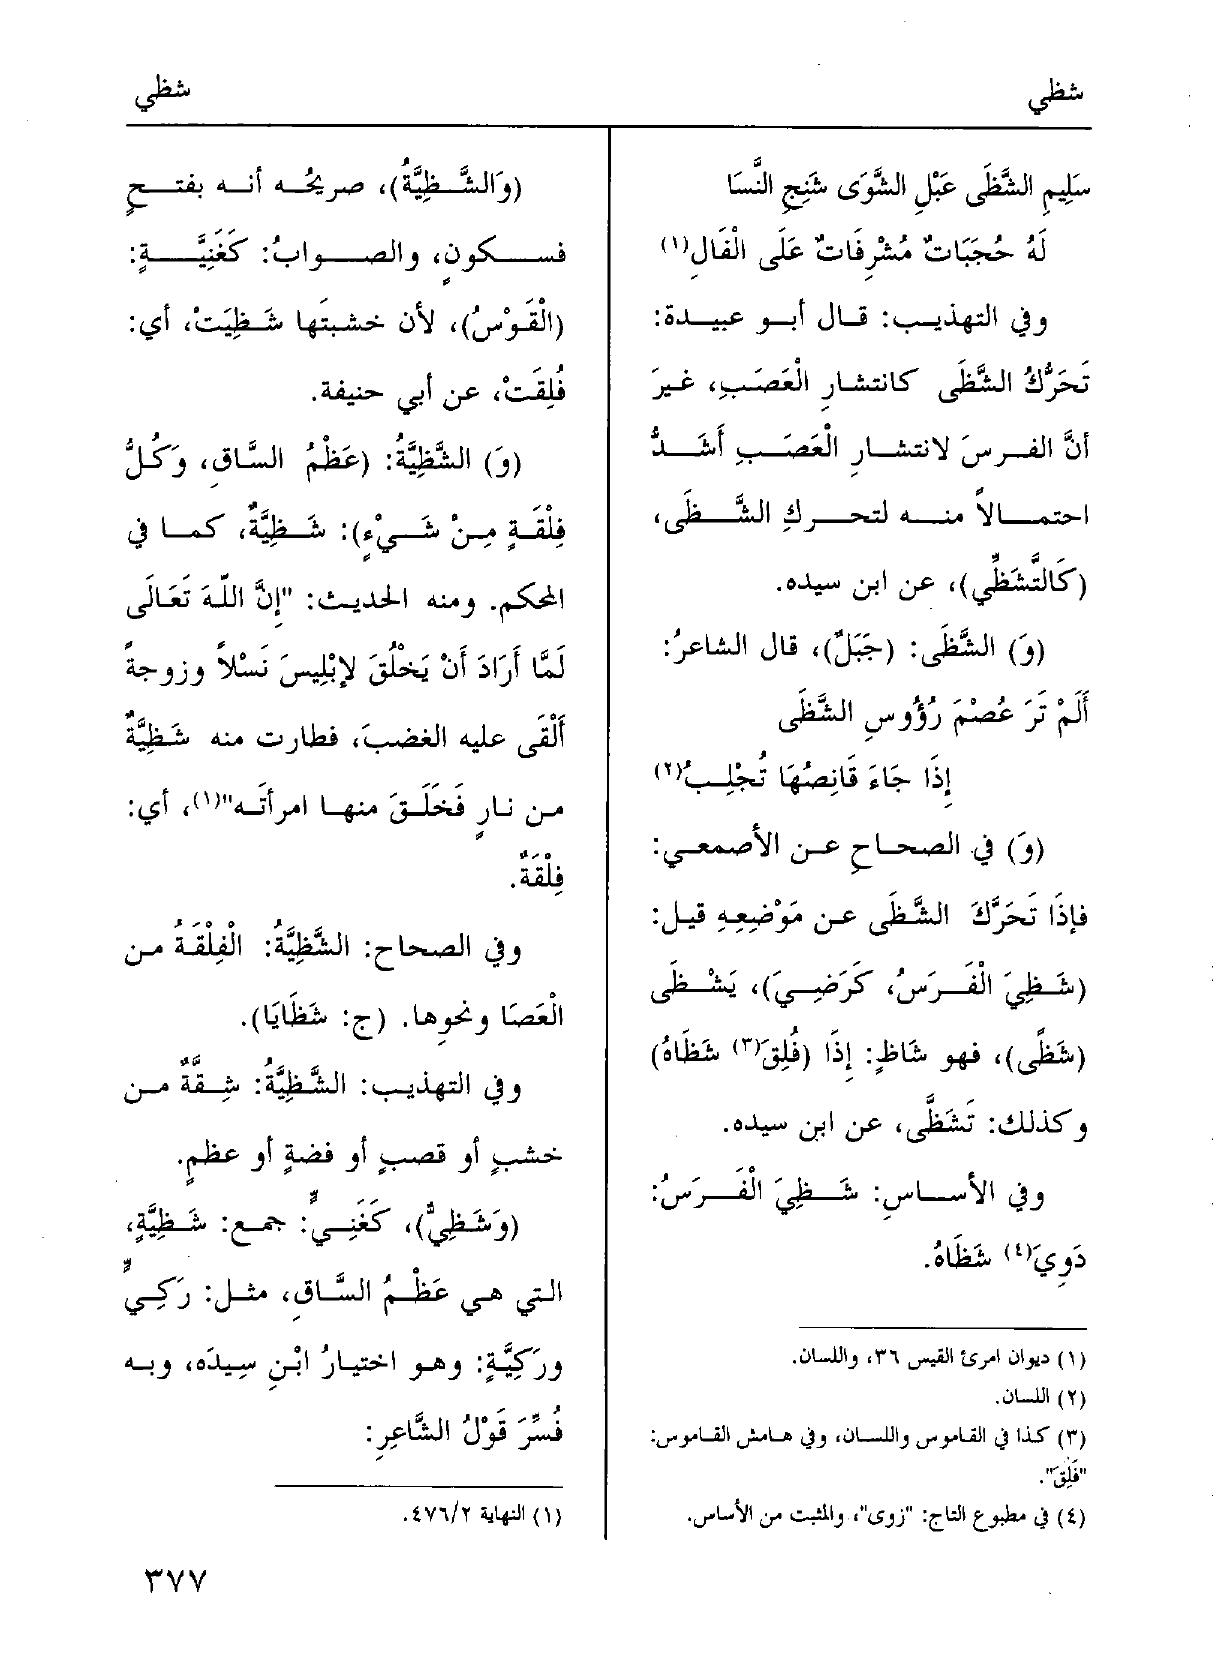 شظي
شظي
سَلِيمِ الشَّظَى عَبْلِ الشَّوَى شَنِجِ النَّسَا
لَهُ حُجَبَاتٌ مُشْرِفَاتٌ عَلَى الْفَالِ(١)
وفي التهذيب: قال أبو عبيدة:
تَحَرُّكُ الشَّظَى كانتشارِ الْعَصَبِ، غيرَ
أنَّ الفرسَ لانتشارِ الْعَصَبِ أشَدُّ
احتمالاً منه لتحركِ الشَّظَى،
(كَالتَّشَظِّي)، عن ابن سيده.
(وَ) الشَّظَى: (جَبَلٌ)، قال الشاعرُ:
أَلَمْ تَرَ عُصْمَ رُؤُوسِ الشَّظَى
إِذَا جَاءَ قَانِصُهَا تُجْلِبُ(٢)
(وَ) في الصحاحِ عن الأصمعي:
فإذَا تَحَرَّكَ الشَّظَى عن مَوْضِعِهِ قيل:
(شَظِيَ الْفَرَسُ، كَرَضِيَ)، يَشْظَى
(شَظًى)، فهو شَاظٍ: إِذَا (فُلِقَ(٣) شَظَاهُ)
وكذلك: تَشَظَّى، عن ابن سيده.
وفي الأساسِ: شَظِيَ الْفَرَسُ:
دَوِيَ(٤) شَظَاهُ.
(١) ديوان امرئ القيس ٣٦، واللسان.
(٢) اللسان.
(٣) كذا في القاموس واللسان، وفي هامش القاموس:
"فَلِقَ".
(٤) في مطبوع التاج: "زوى"، والمثبت من الأساس.
(وَالشَّظِيَّةُ)، صريحُه أنه بفتحٍ
فسكونٍ، والصوابُ: كَغَنِيَّةٍ:
(الْقَوْسُ)، لأن خشبتَها شَظِيَتْ، أي:
فُلِقَتْ، عن أبي حنيفة.
(وَ) الشَّظِيَّةُ: (عَظْمُ السَّاقِ، وَكُلُّ
فِلْقَةٍ مِنْ شَيْءٍ): شَظِيَّةٌ، كما في
المحكم. ومنه الحديث: "إِنَّ اللّهَ تَعَالَى
لَمَّا أَرَادَ أَنْ يَخْلُقَ لإبْلِيسَ نَسْلاً وزوجةً
أَلْقَى عليه الغضبَ، فطارت منه شَظِيَّةٌ
من نارٍ فَخَلَقَ منها امرأتَه"(١)، أي:
فِلْقَةٌ.
وفي الصحاح: الشَّظِيَّةُ: الْفِلْقَةُ من
الْعَصَا ونحوها. (ج: شَظَايَا).
وفي التهذيب: الشَّظِيَّةُ: شِقَّةٌ من
خشبٍ أو قصبٍ أو فضةٍ أو عظمٍ.
(وَشَظِيٌّ)، كَغَنِيٍّ: جمع: شَظِيَّةٍ،
التي هي عَظْمُ السَّاقِ، مثل: رَكِيٍّ
ورَكِيَّةٍ: وهو اختيارُ ابْنِ سِيدَه، وبه
فُسِّرَ قَوْلُ الشَّاعِرِ:
(١) النهاية ٤٧٦/٢.
٣٧٧